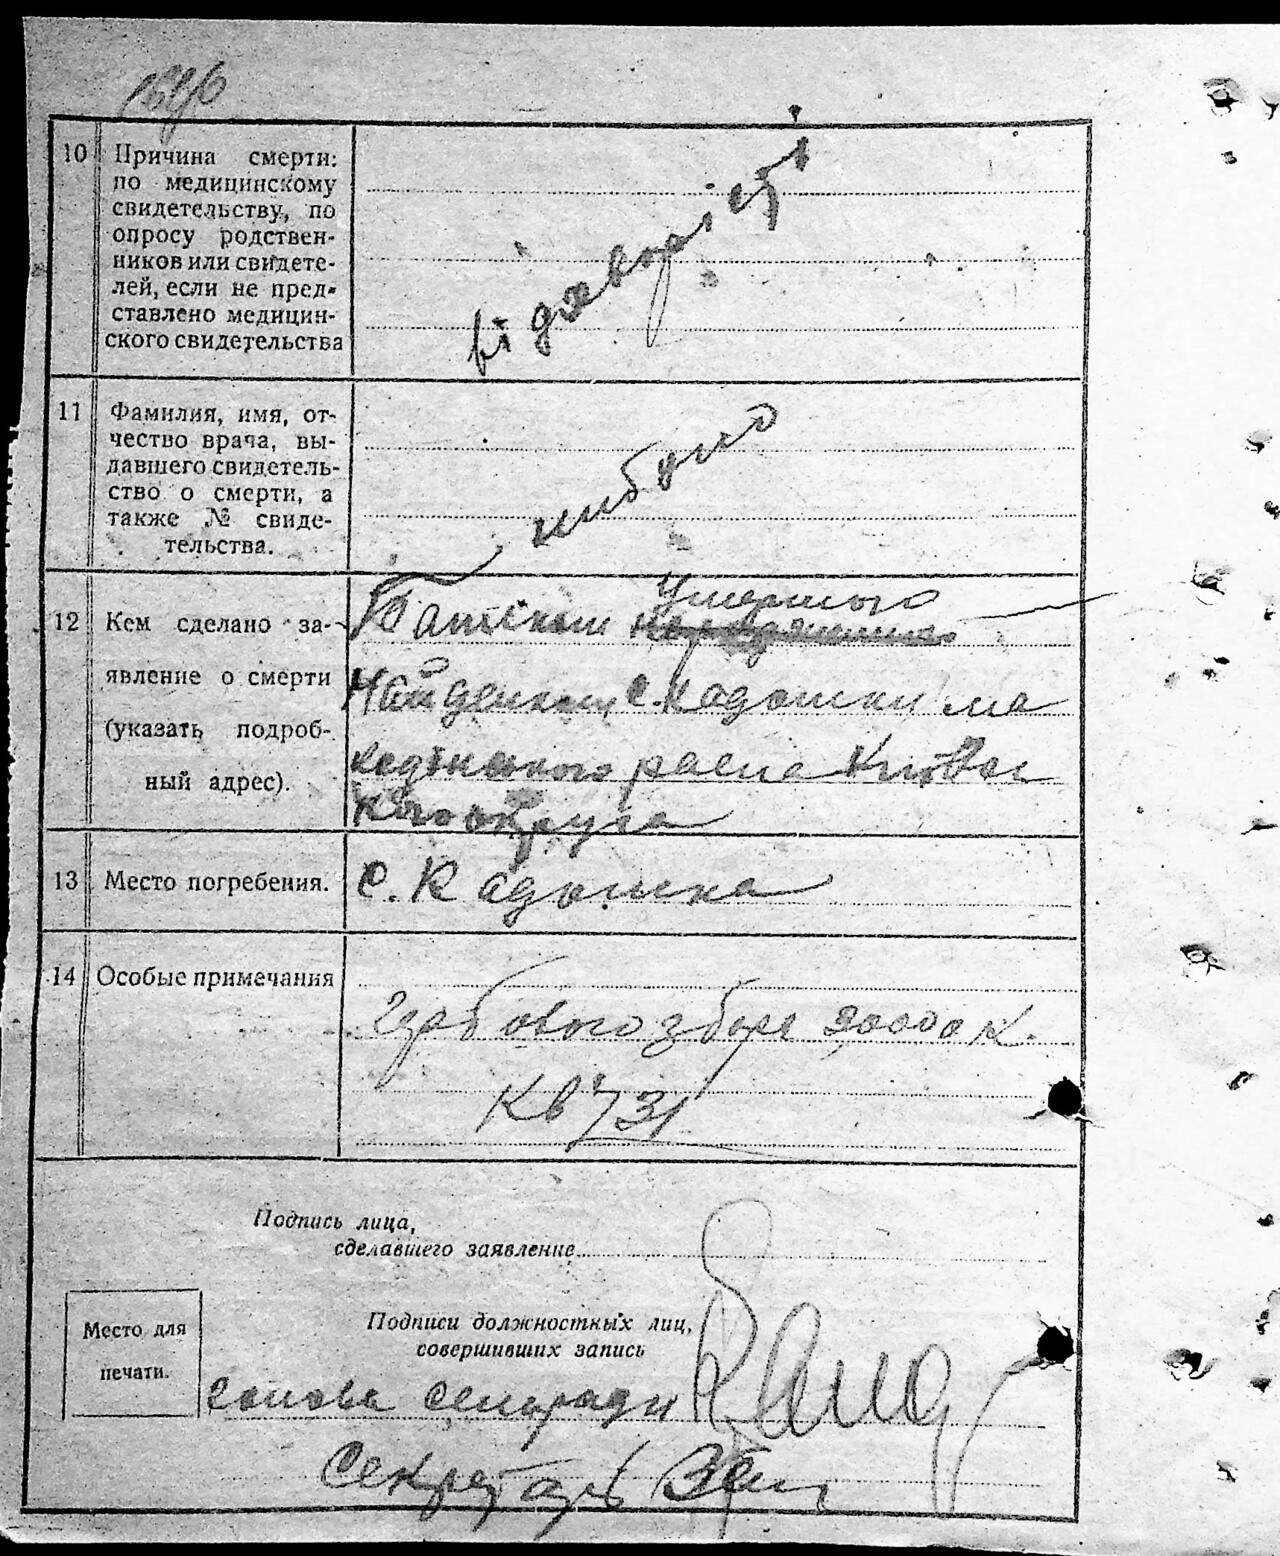 10 Причина смерти:
по медицинскому
свидетельству, по
опросу родствен-
ников или свидете-
лей, если не пред-
ставлено медицин-
ского свидетельства
11 Фамилия, имя, от-
чество врача, вы-
давшего свидетель-
ство о смерти, а
также № свиде-
тельства.
не було
12 Кем сделано за-
явление о смерти
(указать подроб-
ный адрес).
Батьком
умершого
с. Кадошки ма
округа
13 Место погребения.
с. Кадошка
14 Особые примечания
гербового збора 20000 к.
кв 731
Подпись лица,
сделавшего заявление
Место для
печати.
Подписи должностных лиц,
совершивших запись
голова сельради
Секретарь